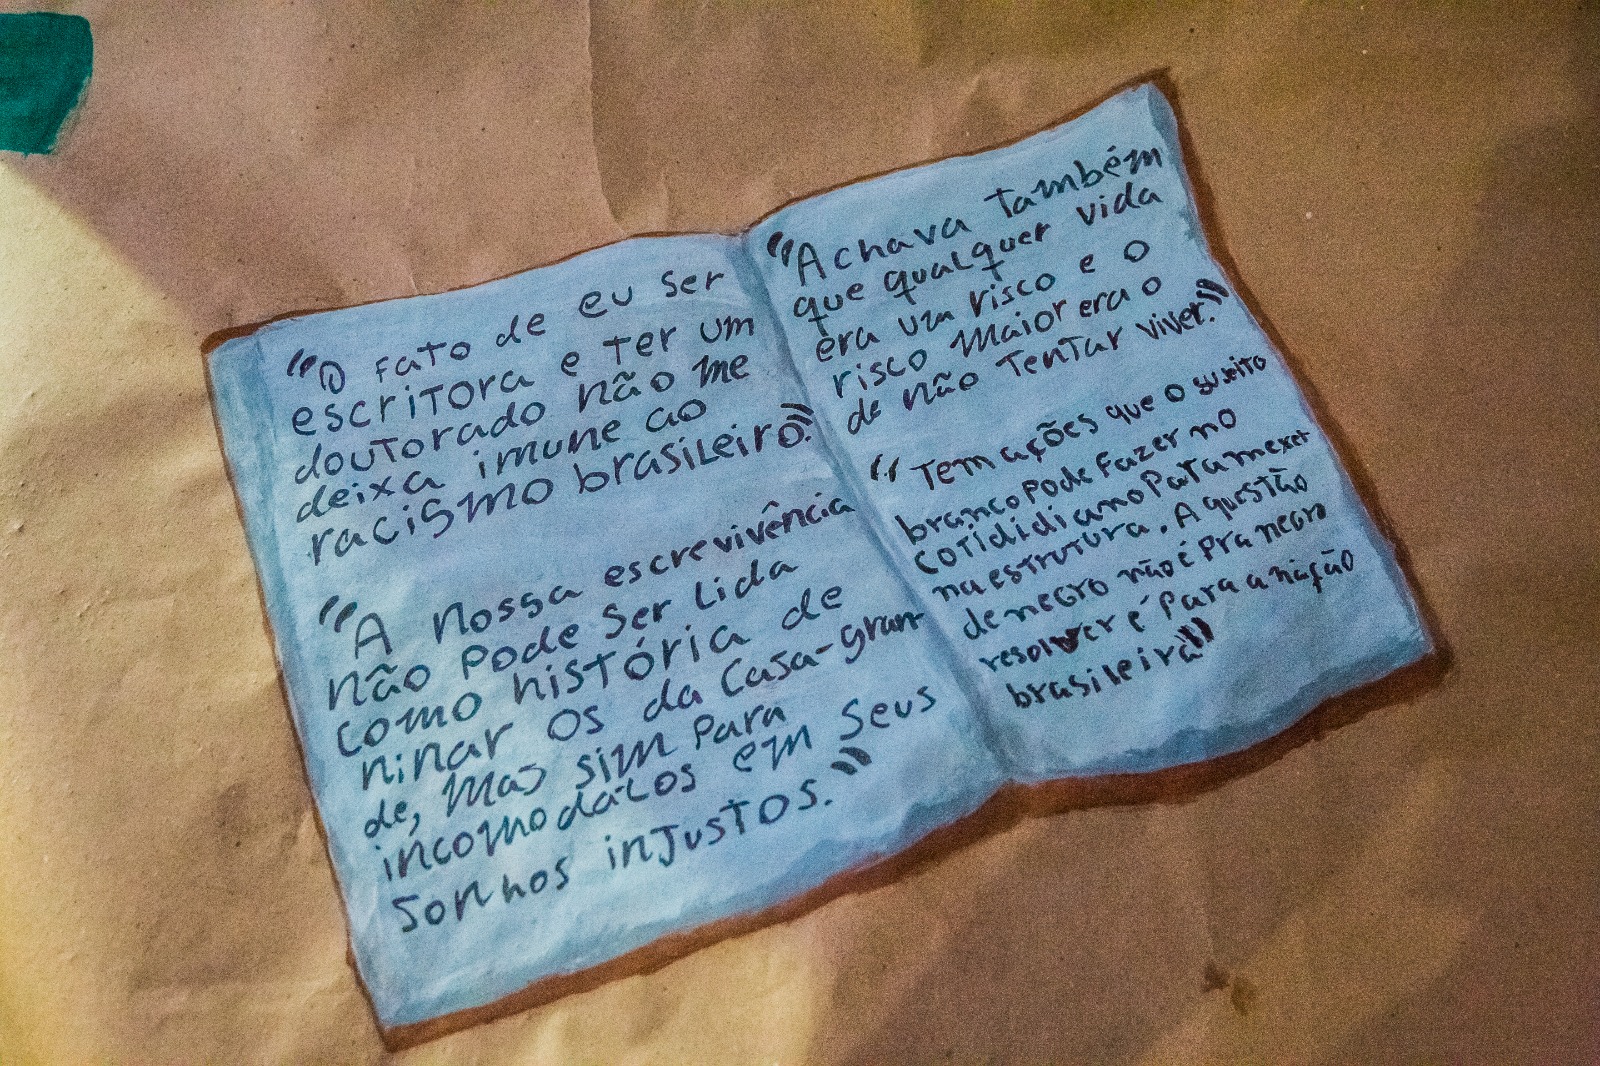 "O fato de eu ser
escritora e ter um
doutorado não me
deixa imune ao
racismo brasileiro."
"A nossa escrevivência
não pode ser lida
como história de
ninar os da casa-gran
de, mas sim para
incomodá-los em seus
sonhos injustos."
"Achava também
que qualquer vida
era um risco e o
risco maior era o
de não tentar viver."
"Tem ações que o sujeito
branco pode fazer no
cotidiano para mexer
na estrutura. A questão
de negro não é pra negro
resolver é para a nação
brasileira"